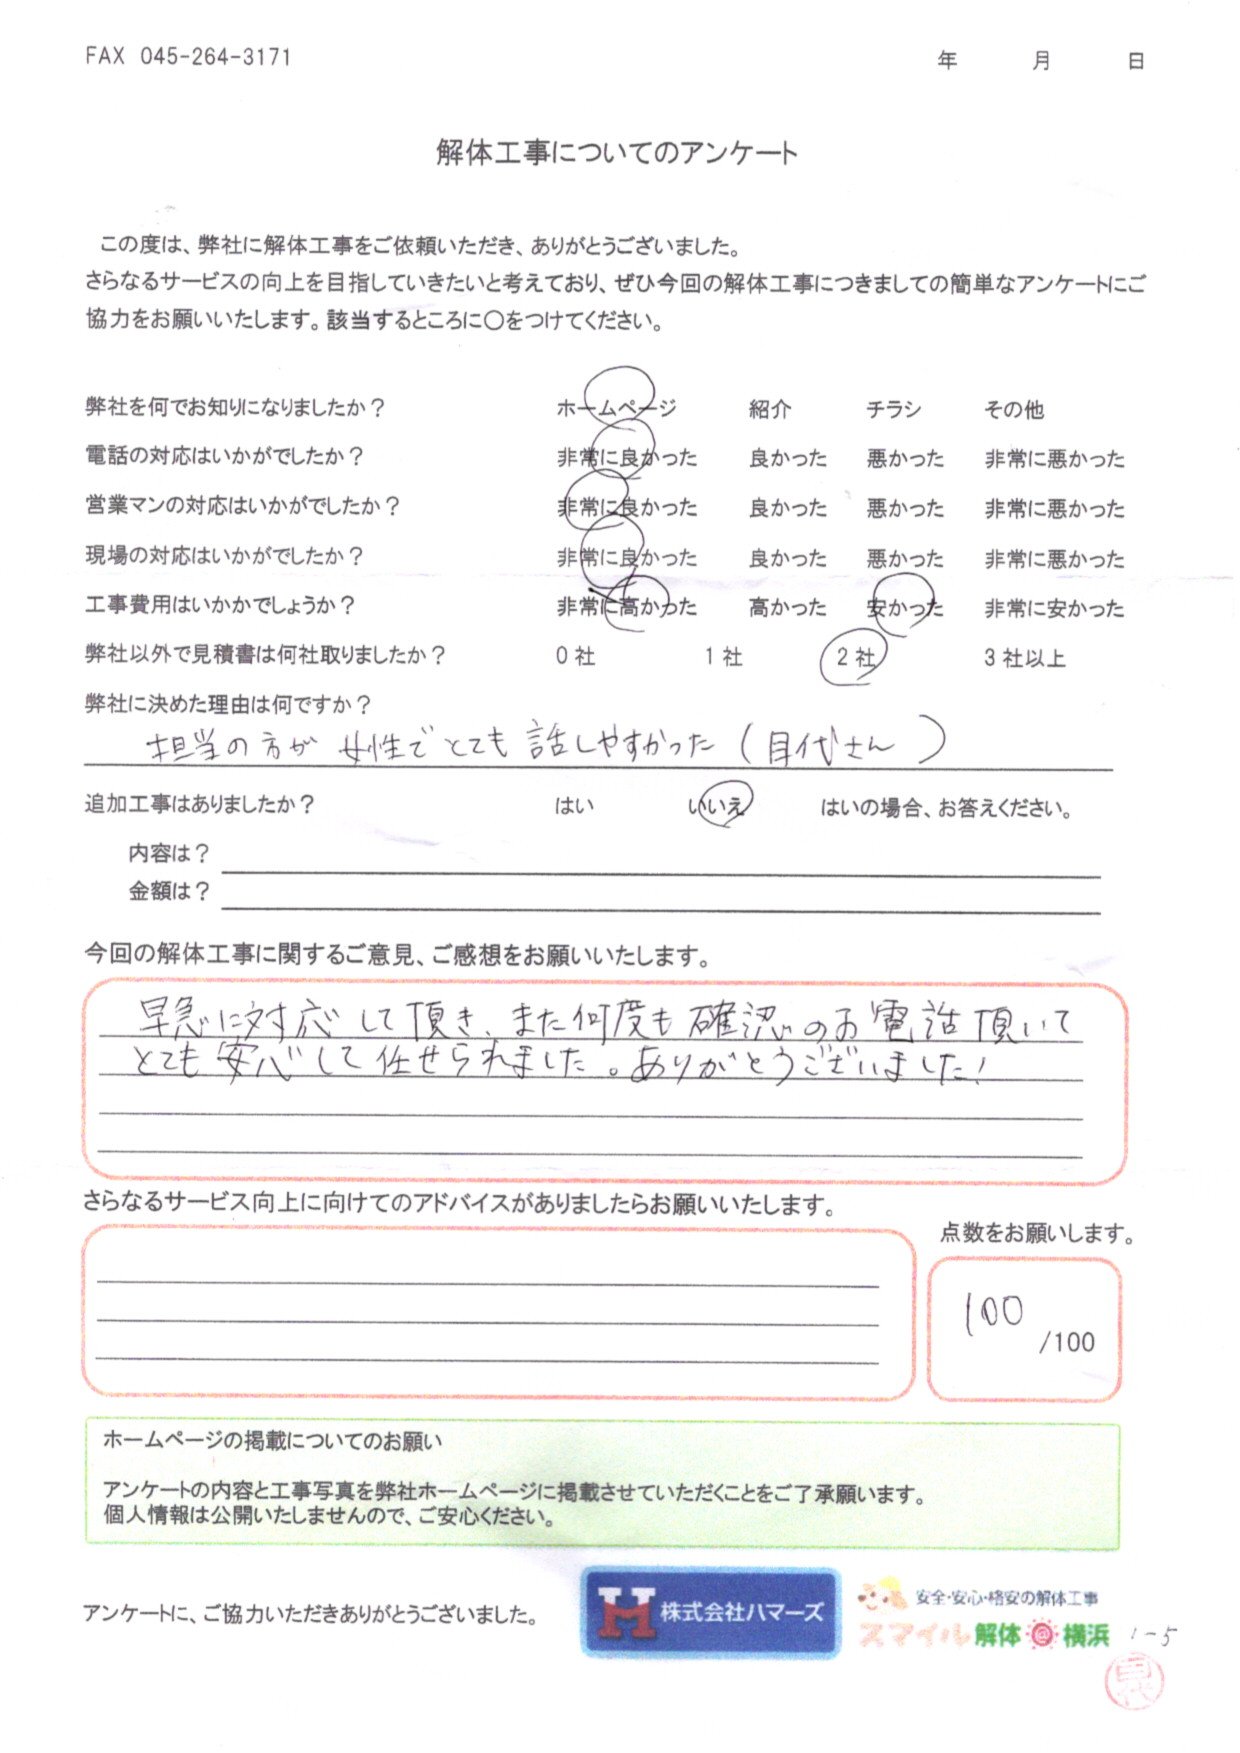 FAX 045-264-3171 年 月 日
解体工事についてのアンケート
この度は、弊社に解体工事をご依頼いただき、ありがとうございました。
さらなるサービスの向上を目指していきたいと考えており、ぜひ今回の解体工事につきましての簡単なアンケートにご
協力をお願いいたします。該当するところに〇をつけてください。
弊社を何でお知りになりましたか？ ホームページ 紹介 チラシ その他
電話の対応はいかがでしたか？ 非常に良かった 良かった 悪かった 非常に悪かった
営業マンの対応はいかがでしたか？ 非常に良かった 良かった 悪かった 非常に悪かった
現場の対応はいかがでしたか？ 非常に良かった 良かった 悪かった 非常に悪かった
工事費用はいかかでしょうか？ 非常に高かった 高かった 安かった 非常に安かった
弊社以外で見積書は何社取りましたか？ 0社 1社 2社 3社以上
弊社に決めた理由は何ですか？
担当の方が 女性でとても 話しやすかった（目代さん）
追加工事はありましたか？ はい いいえ はいの場合、お答えください。
内容は？
金額は？
今回の解体工事に関するご意見、ご感想をお願いいたします。
早急に対応して頂き、また何度も確認のお電話頂いて
とても安心して任せられました。ありがとうございました！
さらなるサービス向上に向けてのアドバイスがありましたらお願いいたします。
点数をお願いします。
100
/100
ホームページの掲載についてのお願い
アンケートの内容と工事写真を弊社ホームページに掲載させていただくことをご了承願います。
個人情報は公開いたしませんので、ご安心ください。
アンケートに、ご協力いただきありがとうございました。
株式会社ハマーズ
安全・安心・格安の解体工事
スマイル解体@横浜
1-5